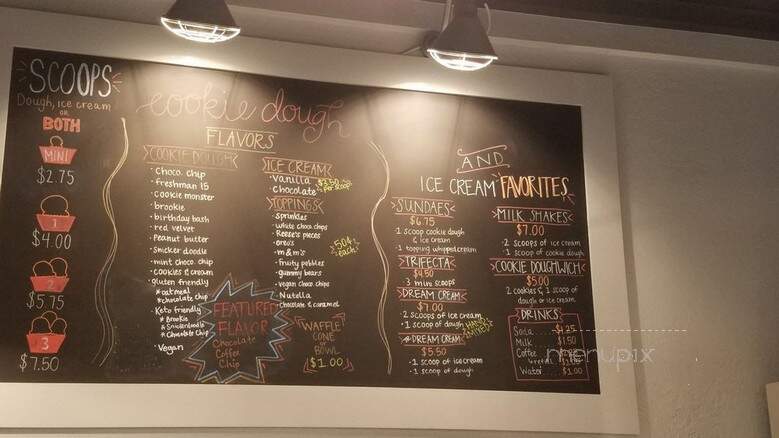 SCOOPS
Dough, ice cream
or
BOTH
MINI
$2.75
1
$4.00
2
$5.75
3
$7.50
cookie dough
FLAVORS
COOKIE DOUGH
· choco. chip
· freshman 15
· cookie monster
· brookie
· birthday bash
· red velvet
· Peanut butter
· snicker doodle
· mint choco. chip
· cookies & cream
· gluten friendly
* oatmeal
* chocolate chip
· Keto friendly
* Brookie
* Snickerdoodle
* Chocolate Chip
· Vegan
FEATURED
FLAVOR
Chocolate
Coffee
Chip
ICE CREAM
· vanilla
· chocolate
$3.50
per scoop
TOPPINGS
· sprinkles
· white choco chips
· Reese's pieces
· oreo's
· m & m's
· fruity pebbles
· gummy bears
· vegan choco chips
· Nutella
· chocolate & caramel
50¢
each!
WAFFLE
CONE
or
BOWL
$1.00
AND
ICE CREAM FAVORITES
SUNDAES
$6.75
· 1 scoop cookie dough
& ice cream
· 1 topping whipped cream
TRIFECTA
$4.50
· 3 mini scoops
DREAM CREAM
$7.00
· 2 scoops of ice cream
· 1 scoop of dough
HAND
MIXED!
DREAM CREAM
$5.50
· 1 scoop of ice cream
· 1 scoop of dough
MILK SHAKES
$7.00
· 2 scoops of ice cream
· 1 scoop of cookie dough
COOKIE DOUGHWICH
$5.00
2 cookies & 1 scoop of
dough or ice cream
DRINKS
Soda $1.25
Milk $1.50
Coffee
Water $1.00
menupix